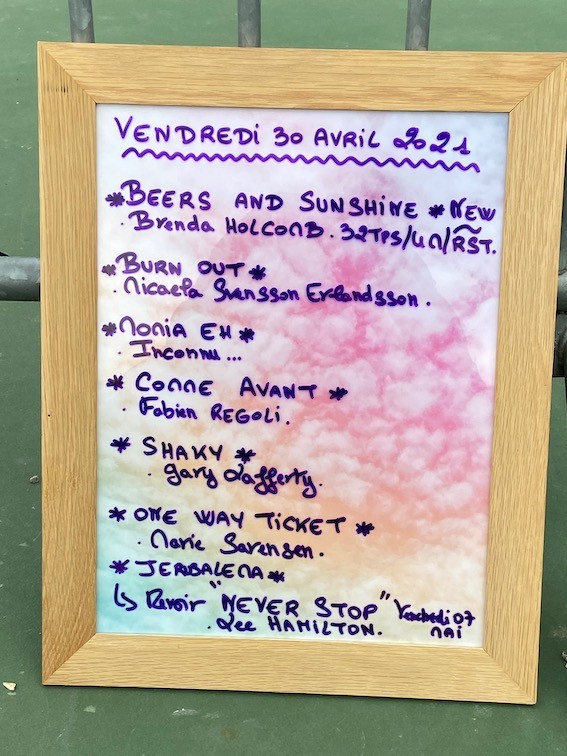 VENDREDI 30 AVRIL 2021
*BEERS AND SUNSHINE *NEW
. Brenda HOLCOMB. 32TPS/4M/RST.
*BURN OUT*
. Micaela Svensson Erlandsson.
*MONIA EH*
. Inconnu...
* COMME AVANT *
. Fabien REGOLI.
* SHAKY *
. Gary Lafferty.
* ONE WAY TICKET *
. Marie Sorensen.
* JERUSALEMA *
↳ Revoir "NEVER STOP" Vendredi 07
. Lee HAMILTON. MAI